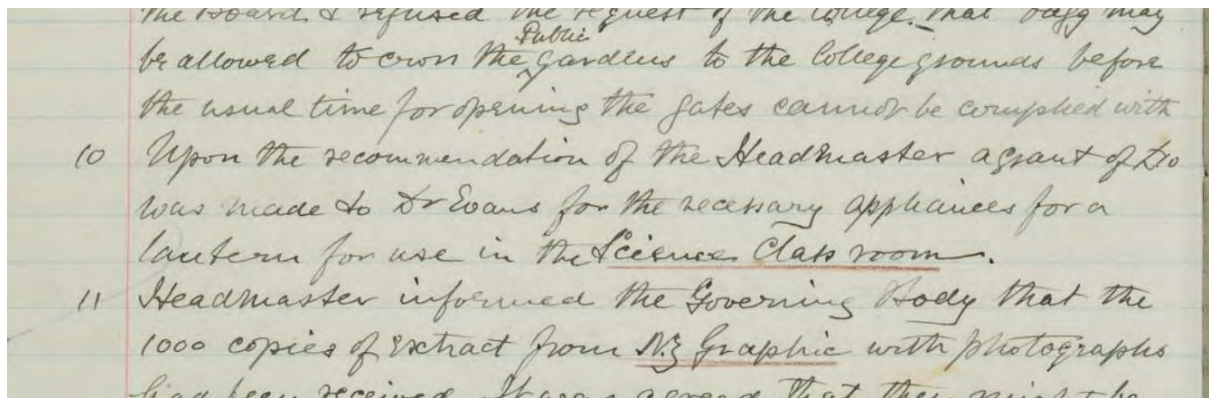 the Board & refused the request of the College that Dagg may
be allowed to cross the Public gardens to the College grounds before
the usual time for opening the gates cannot be complied with
10 Upon the recommendation of the Headmaster a grant of £10
was made to Dr Evans for the necessary appliances for a
lantern for use in the Science Class room.
11 Headmaster informed the Governing Body that the
1000 copies of Extract from N.Z Graphic with photographs
had been received. It was agreed that they might be